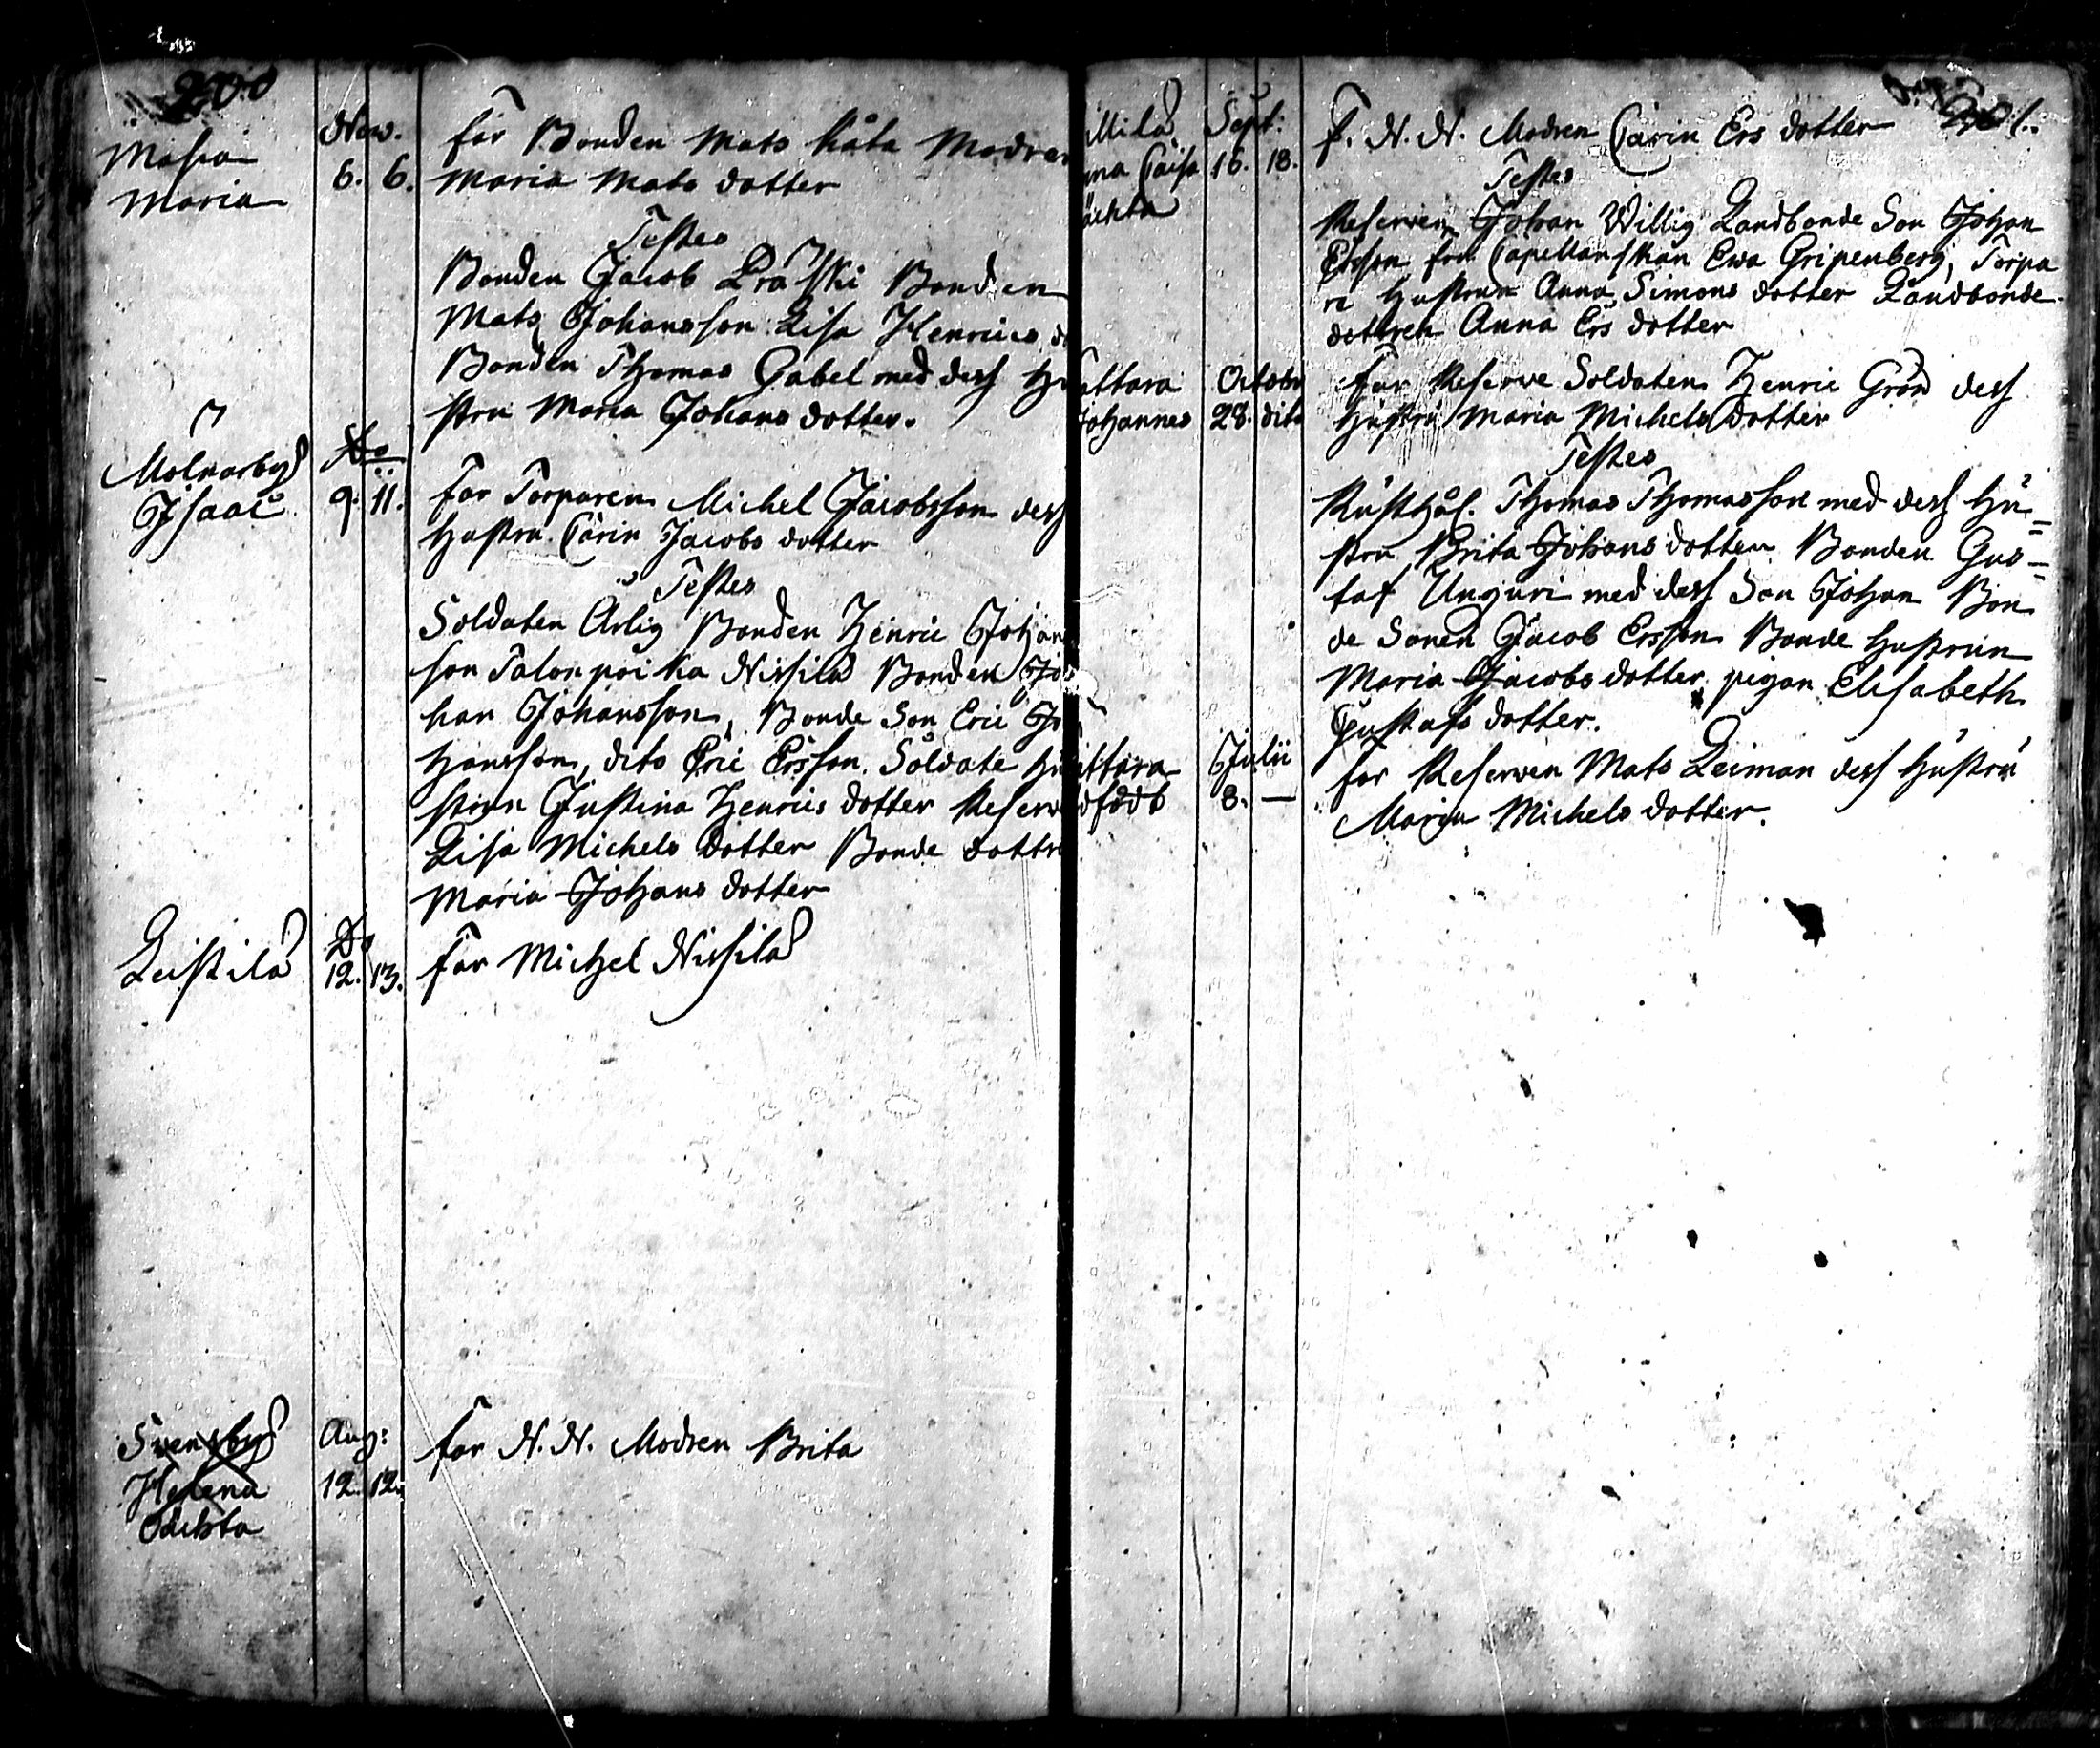 200
Nov.
Masia
Maria
6. 6.
far Bonden Mats Kåta Modren
Maria Mats dotter
Testes
Bonden Jacob Präski Bonden
Mats Johansson Lisa Henrics
Bonden Thomas Gabel med dess Hu
stru Maria Johans dotter.
Molnarby
Isaac
Do
9. 11.
far Torparen Michel Jacobsson dess
Hustru Carin Jacobs dotter
Testes
Soldaten Arlig Bonden Henric Johan
son Talonpoika Nissilä Bonden Jo
han Johansson, Bonde Son Eric Jo
hansson, dito Eric Ersson. Soldate Hu
strun Justina Henrics dotter Reserv
Lisa Michels dotter Bonde dottr
Maria Johans dotter
Leistilä
Do
12. 13.
far Michel Nissilä
Svensby
Helena
Oächta
Aug:
12. 12.
far N. N. Modren Brita
201.
Milä
na Caisa
ächta
Sept:
16. 18.
f. N. N. Modren Carin Ers dotter
Testes
Reserven Johan Willig Landbonde Son Johan
Ersson fru Capellanskan Ewa Gripenberg, Torpa
re Hustrun Anna Simons dotter Landbonde
dottren Anna Ers dotter
attara
Johannes
Octobr
28. dito
far Reserve Soldaten Henric Grön dess
Hustru Maria Michels dotter
Testes
Rusthål. Thomas Thomasson med dess Hu=
stru Brita Johans dotter Bonden Gus=
taf Unguri med dess Son Johan Bon
de Sonen Jacob Ersson Bonde Hustrun
Maria Jacobs dotter pigan Elisabeth
Gustafs dotter.
attara
dfödt
Julii
8. —
far Reserven Mats Leiman dess Hustru
Maria Michels dotter.